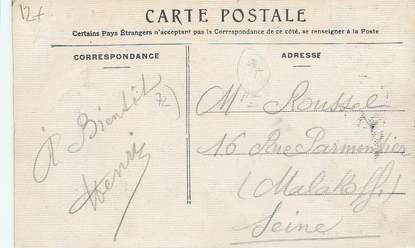 12+
CARTE POSTALE
Certains Pays Étrangers n'acceptant pas la Correspondance de ce côté, se renseigner à la Poste
CORRESPONDANCE
ADRESSE
A Bientôt
Henri
72
M Roussel
16 Rue Parmentier
(Malakoff)
Seine